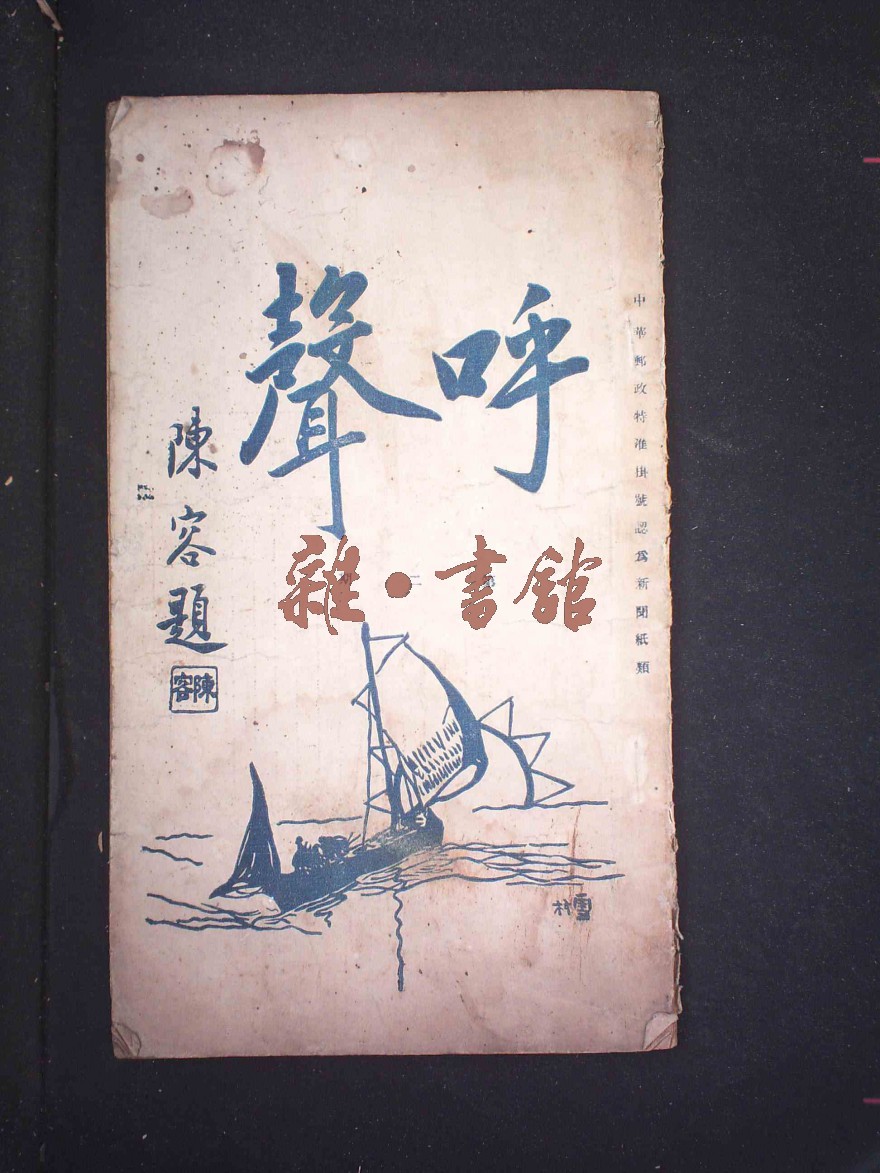 中華郵政特准掛號認爲新聞紙類
呼聲
第二
陳容題
陳容
雜·書館
雪